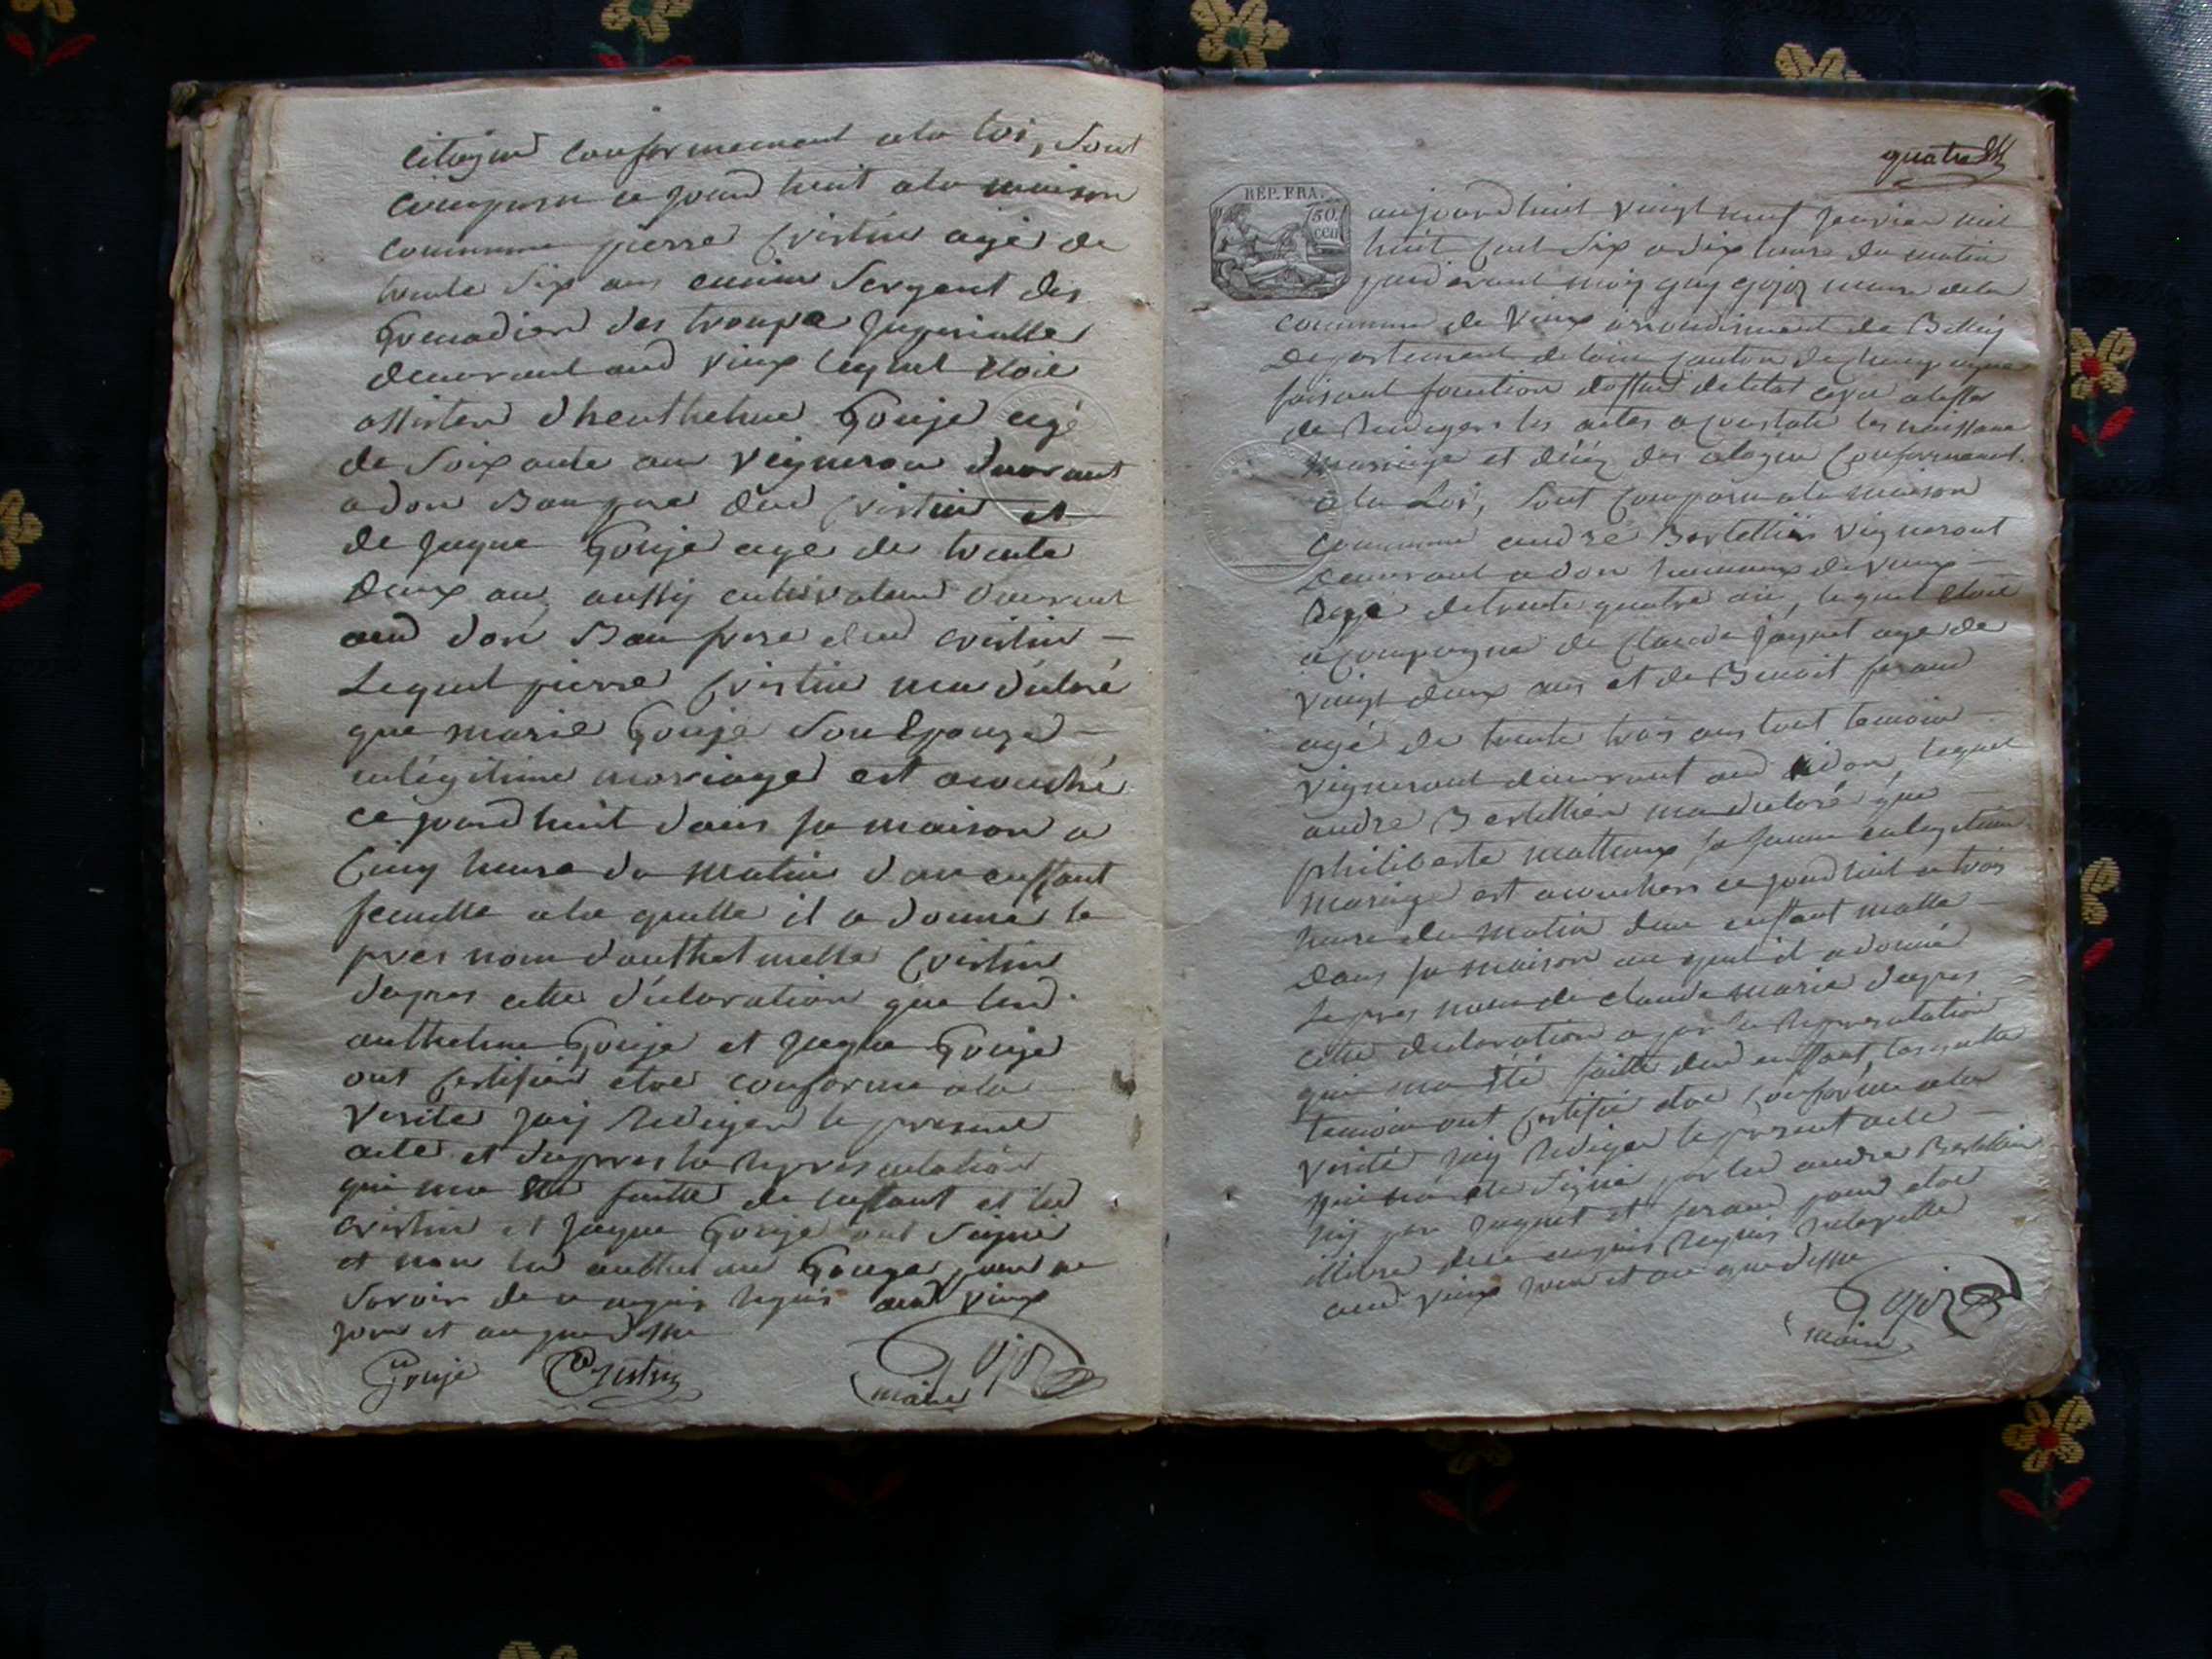 citoyens conformement a la loi, sont
comparu ce jourd huit a la maison
commune pierre Cristin agé de
trente six ans ensien Sergent des
Grenadiers des troupe Imperialle
demeurant aud vieux lequel etoit
assister dheanthelme Gouje agé
de soixante ans vigneron
a don Beaupere dud Cristin et
de Jaque Gouje age de trente
deux ans aussy cultivateur demeurant
aud don Beau frere dud cristin
Lequel pierre Cristin ma déclaré
que marie Gouje Son Epouze
en légitime mariage est acouché
ce jourd huit dans sa maison a
Cinq heure du matin d'un enffant
femelle a la quelle il a donné le
pres nom d'anthelmette Cristin
d'apres cette déclaration que led
anthelme Gouje et Jaque Gouje
ont certifié etre conforme a la
verite jaij Rediger le present
acte et d'apres la Representation
qui ma été faitte de lenffant et led
cristin et Jaque Gouje ont Signé
et non led anthelme Gouje pour ne
savoir de ce enquis Requis aud vieux
jour et an que dessu
Gouje Cristin Gojoz
maire
quatre
REP. FRA.
50.
cen
aujourdhuit vingt neuf janvier mil
huit cent Six a dix heure du matin
pardevant moij guy gojoz maire de la
commune de Vieux arrondisement de Belley
Departement de lain canton de Champagne
faisant fonction doffisié de letat civil
de Rediger les actes a constater les naissance
mariage et décéz des citoyens Conformement
a la Loi, Sont Comparu a la maison
commune andré Bertellier vigneront
demeurant a don hameaux de vieux
agé de trente quatre ans, lequel etoit
acompagné de Claude Jaquet age de
vingt deux ans et de Benoit feraud
agé de trente trois ans tout temoin
vigneront demeurant aud don, lequel
andre Bertellier ma declaré que
philiberte mathieux sa femme en legitime
mariage est acoucher ce jourd huit a trois
heure du matin d'un enffant malle
dans sa maison au quel il a donné
Le pres nom de claude marie d'apres
cette declaration a par la Representation
qui ma été faitte dud enffant, lesquelle
temoin ont certifié etre Conforme a la
verité jaij Rediger le present acte
qui na ete Signé par led andre Bertellier
nij par Jaquet et feraud pour etre
illitere de ce enquis Requis
aud vieux jour et an que dessu
Gojoz
maire